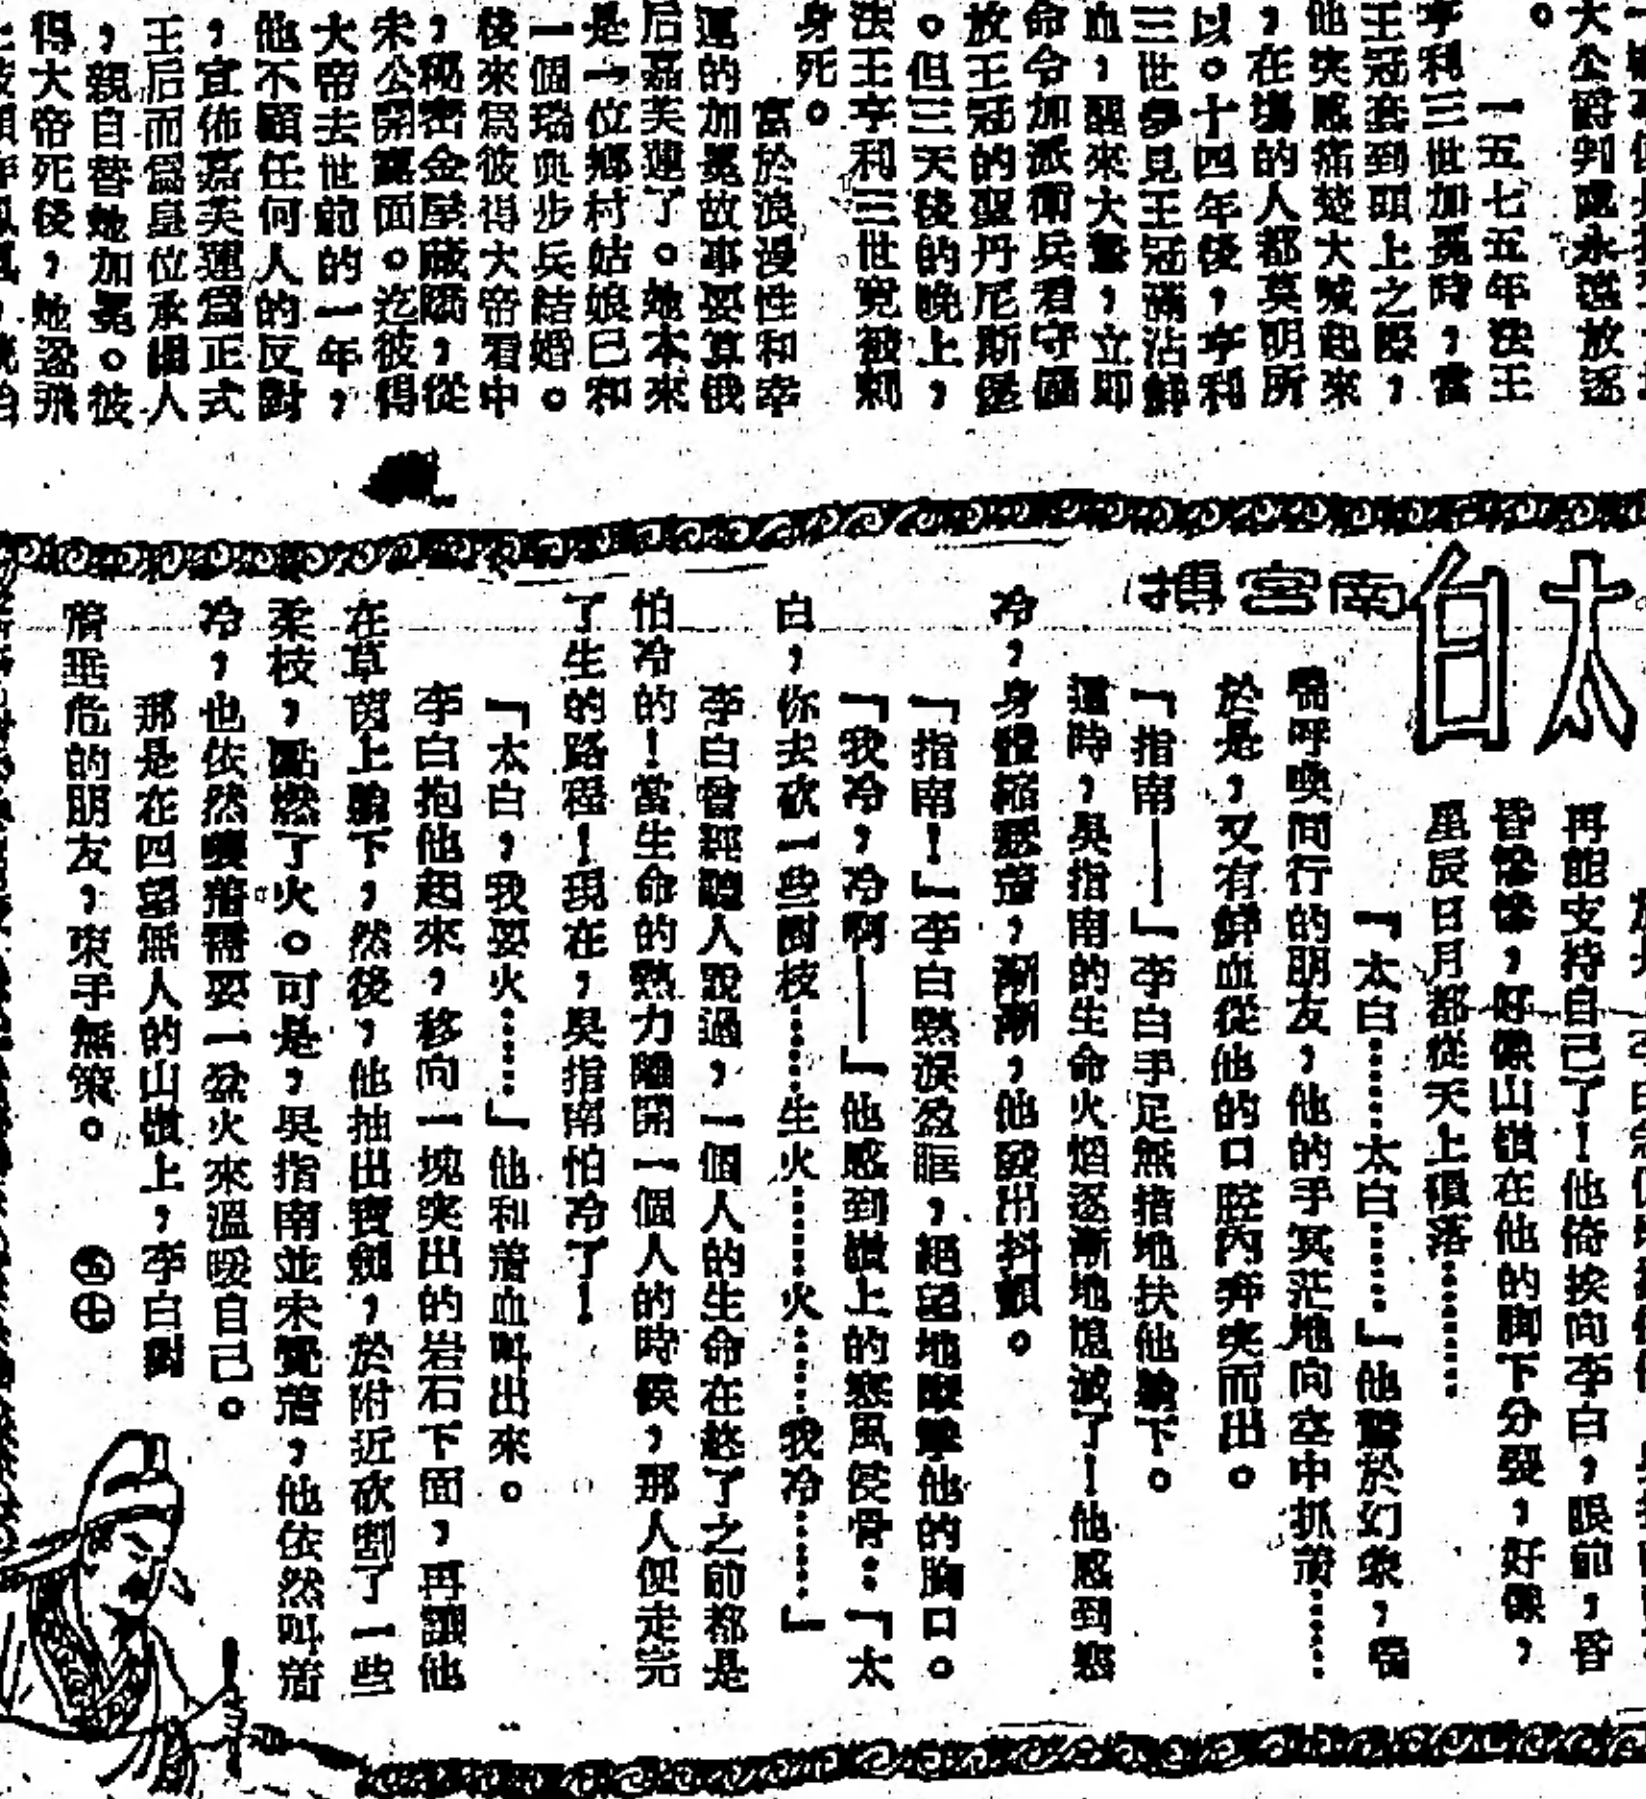 大公爵判處永遠放逐
。
一五七五年法王
亨利三世加冕時，當
王冠套到頭上之際，
他突感痛楚大喊起來
，在場的人都莫明所
以。十四年後，亨利
三世夢見王冠滿沾鮮
血，醒來大驚，立即
命令加派衛兵看守儲
放王冠的聖丹尼斯堡
。但三天後的晚上，
法王亨利三世竟被刺
身死。
富於浪漫性和幸
運的加冕故事要算俄
后嘉芙蓮了。她本來
是一位鄉村姑娘已和
一個瑞典步兵結婚。
後來爲彼得大帝看中
，秘密金屋藏嬌，從
未公開露面。迄彼得
大帝去世前的一年，
他不顧任何人的反對
，宣佈嘉芙蓮爲正式
王后而爲皇位承繼人
，親自替她加冕。彼
得大帝死後，她遂飛
太白
南宮搏
再能支持自己了！他倚挨向李白，眼前，昏
昏慘慘，好像山嶺在他的脚下分裂，好像，
星辰日月都從天上殞落………
『太白……太白……』他驚於幻象，喘
喘呼喚同行的朋友，他的手冥茫地向空中抓着……
於是，又有鮮血從他的口腔內奔突而出。
『指南——』李白手足無措地扶他躺下。
這時，吳指南的生命火焰逐漸地熄滅了！他感到寒
冷，身體縮瑟着，漸漸，他發出抖顫。
『指南！』李白熱淚盈眶，絕望地擊他的胸口。
『我冷，冷啊——』他感到嶺上的寒風侵骨：『太
白，你去砍一些樹枝……生火……火……我冷……』
李白曾經聽人說過，一個人的生命在熬了之前都是
怕冷的！當生命的熱力離開一個人的時候，那人便走完
了生的路程！現在，吳指南怕冷了！
『太白，我要火……』他和着血叫出來。
李白抱他起來，移向一塊突出的岩石下面，再讓他
在草茵上躺下，然後，他抽出寶劍，於附近砍劃了一些
柔枝，點燃了火。可是，吳指南並未覺着，他依然叫着
冷，也依然嚷着需要一盆火來溫暖自己。
那是在四望無人的山嶺上，李白對
着垂危的朋友，束手無策。 ㊄㊉